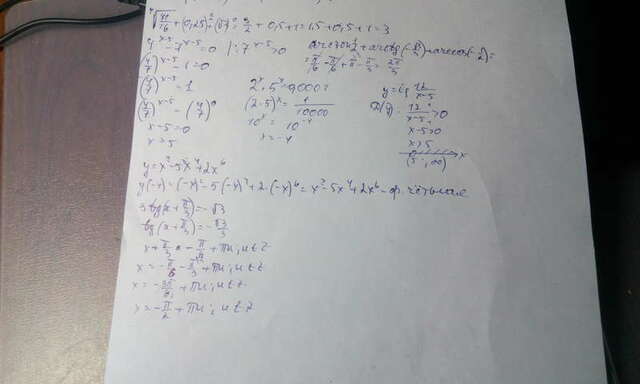 ⁴√(81/16) + (0,25)^½ + (√7)⁰ = 3/2 + 0,5 + 1 = 1,5 + 0,5 + 1 = 3
4^(x-5) - 7^(x-5) = 0 | : 7^(x-5) > 0
(4/7)^(x-5) - 1 = 0
(4/7)^(x-5) = 1
(4/7)^(x-5) = (4/7)⁰
x - 5 = 0
x = 5
= π/6 - π/6 + π - π/3 = 2π/3
2ˣ · 5ˣ = 0,0001
(2·5)ˣ = 1/10000
10ˣ = 10⁻⁴
x = -4
y = lg 12/(x-5)
D(y): 12/(x-5) > 0
x - 5 > 0
x > 5
(5; ∞)
y = x² - 5x⁴ + 2x⁶
y(-x) = (-x)² - 5(-x)⁴ + 2·(-x)⁶ = x² - 5x⁴ + 2x⁶ - ф. четная
3 tg(x + π/3) = -√3
tg(x + π/3) = -√3/3
x + π/3 = -π/6 + πn; n ∈ Z
x = -π/6 - π/3 + πn; n ∈ Z
x = -3π/6 + πn; n ∈ Z
x = -π/2 + πn; n ∈ Z